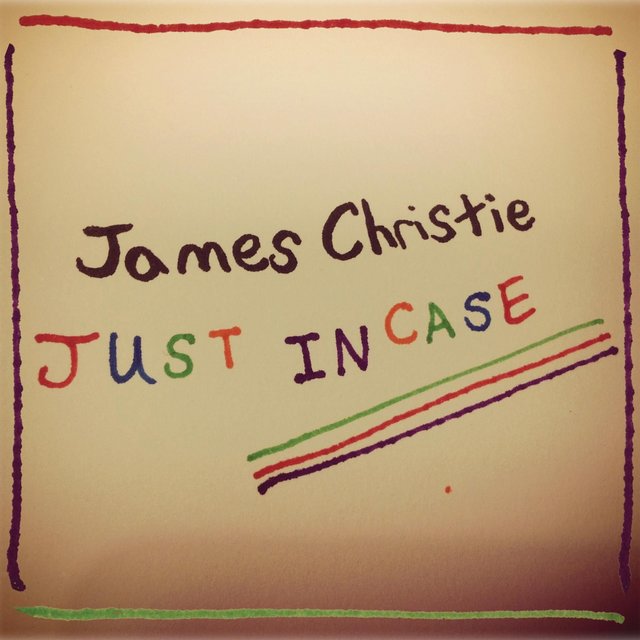 James Christie
JUST IN CASE